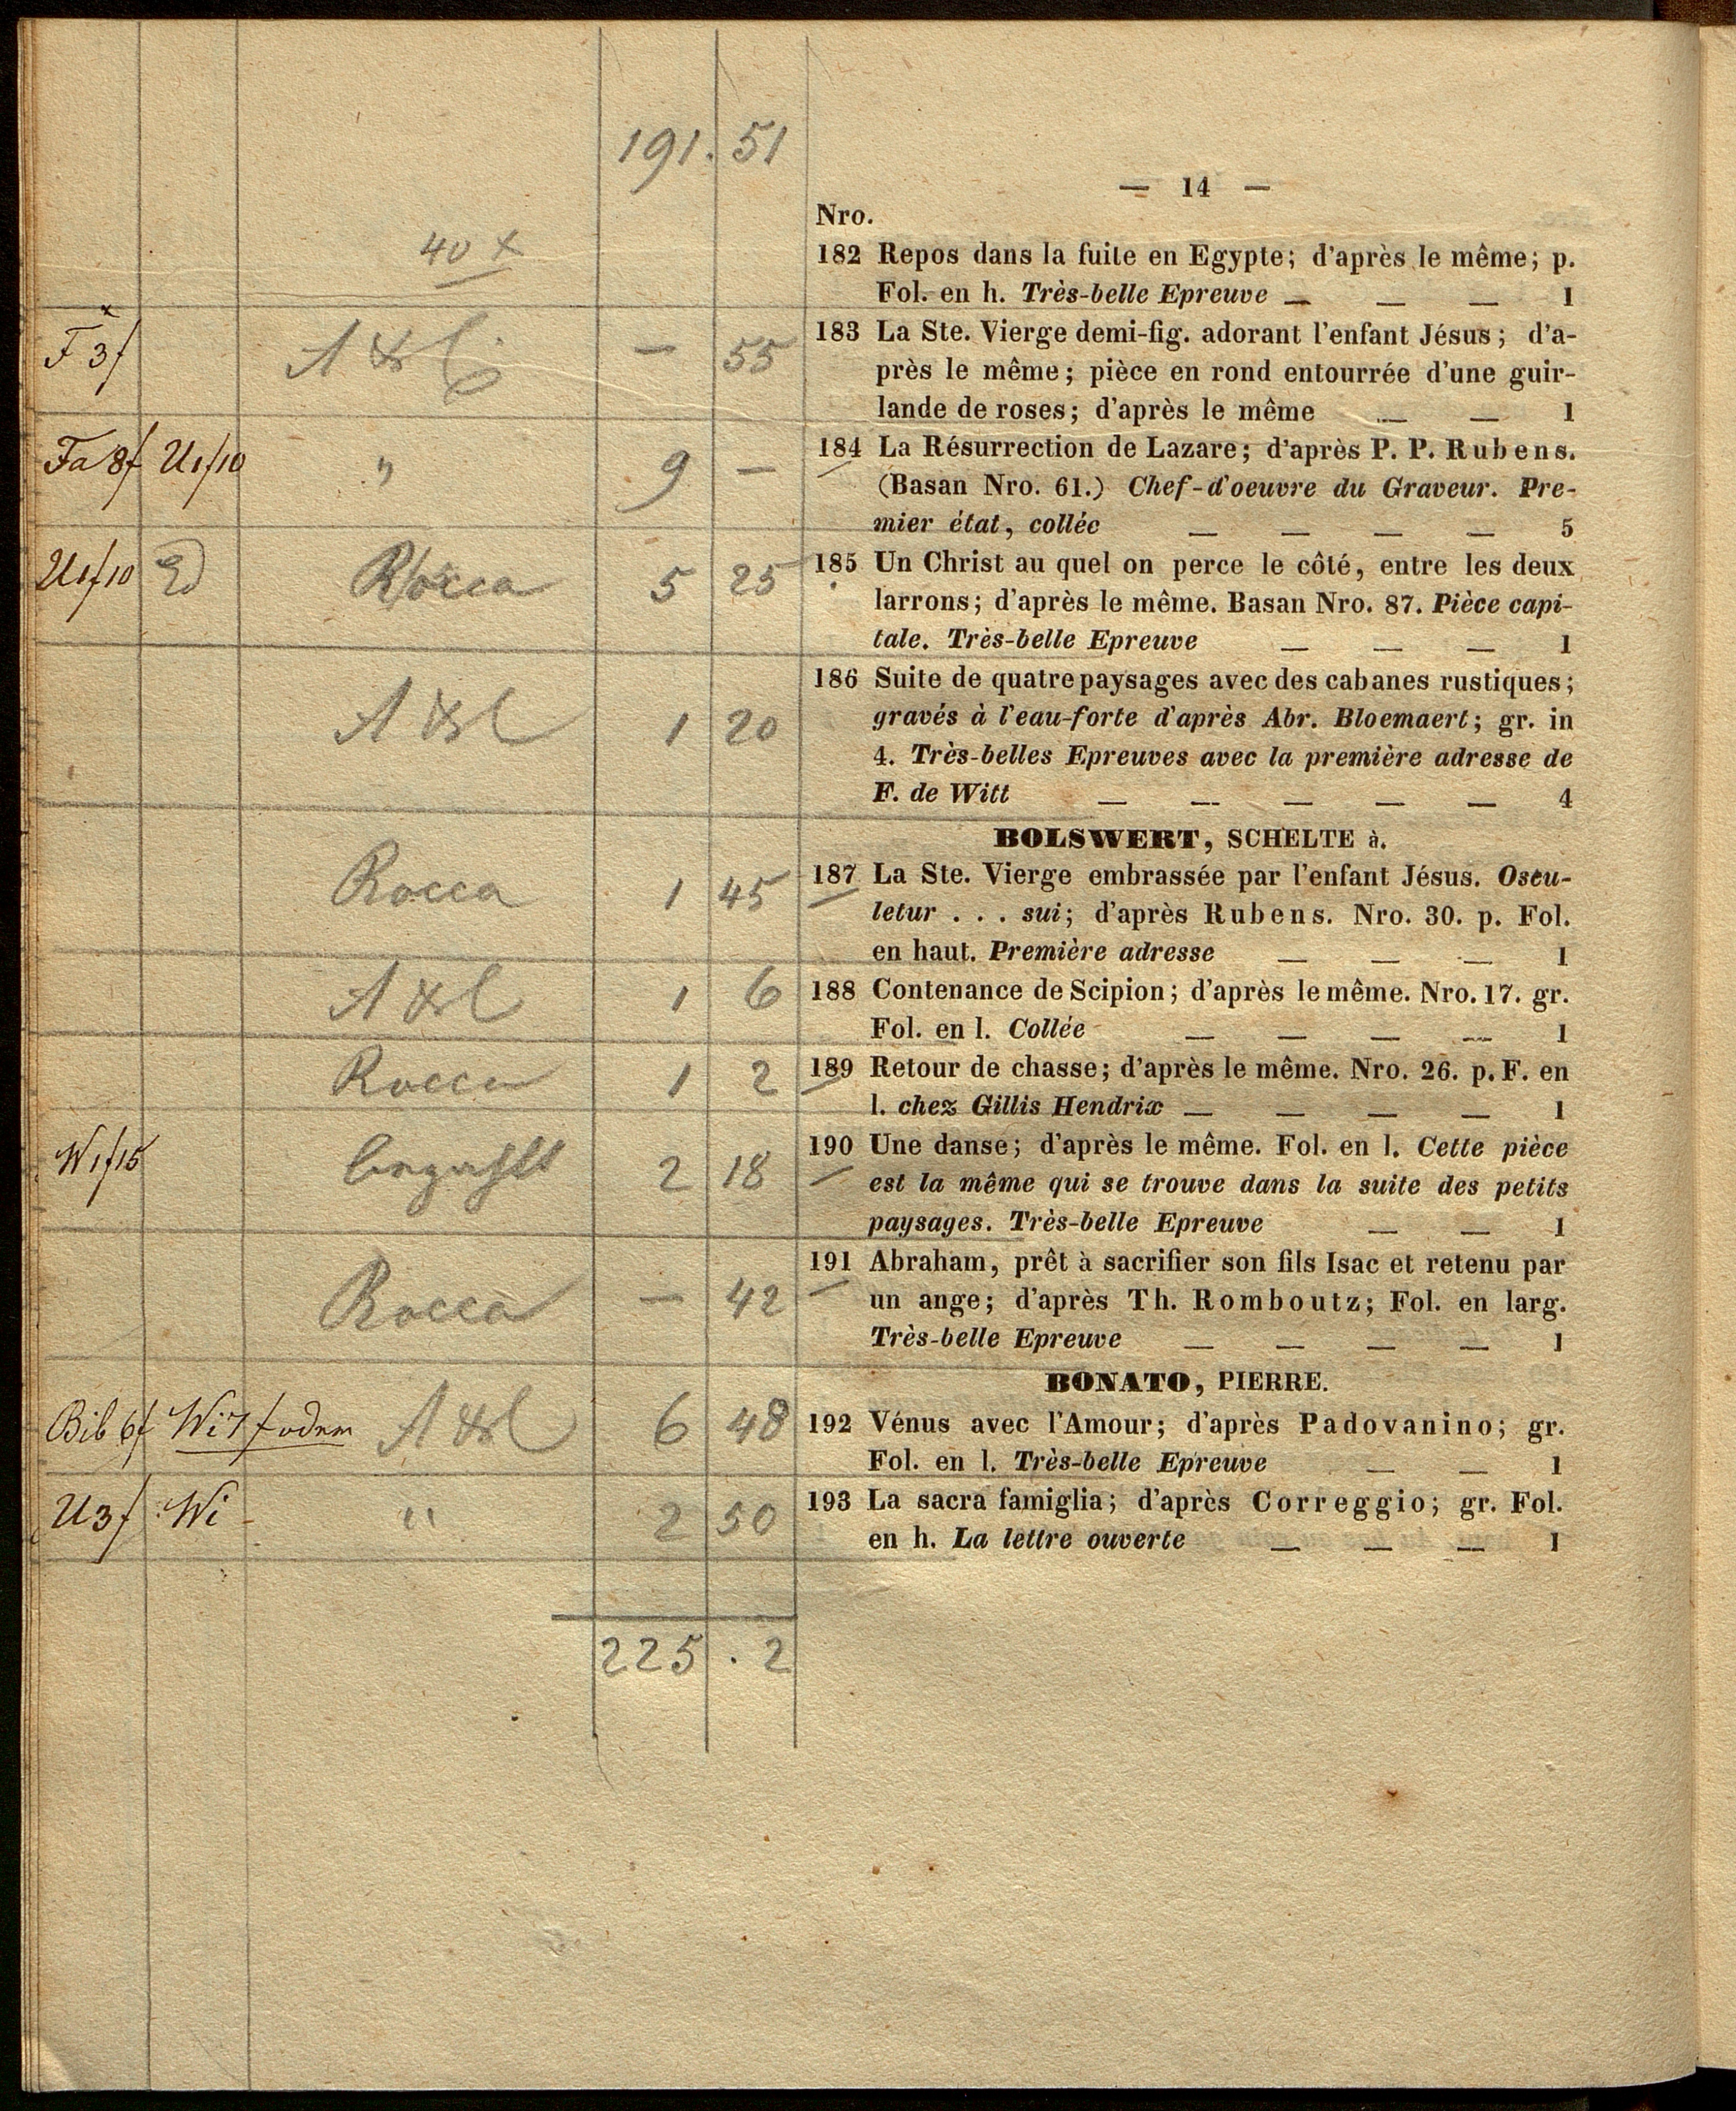 191. 51
— 14 —
Nro.
40 x
182 Repos dans la fuite en Egypte; d'après le même; p.
Fol. en h. Très-belle Epreuve — — — 1
F 3f — 55
183 La Ste. Vierge demi-fig. adorant l'enfant Jésus; d'a-
près le même; pièce en rond entourrée d'une guir-
lande de roses; d'après le même — — 1
Fa 8f U1f10 " 9 —
184 La Résurrection de Lazare; d'après P. P. Rubens.
(Basan Nro. 61.) Chef-d'oeuvre du Graveur. Pre-
mier état, collée — — — — 5
U1f10 Ed Rocca 5 25
185 Un Christ au quel on perce le côté, entre les deux
larrons; d'après le même. Basan Nro. 87. Pièce capi-
tale. Très-belle Epreuve — — — 1
1 20
186 Suite de quatre paysages avec des cabanes rustiques;
gravés à l'eau-forte d'après Abr. Bloemaert; gr. in
4. Très-belles Epreuves avec la première adresse de
F. de Witt — — — — — 4
BOLSWERT, SCHELTE à.
Rocca 1 45
187 La Ste. Vierge embrassée par l'enfant Jésus. Oscu-
letur . . . sui; d'après Rubens. Nro. 30. p. Fol.
en haut. Première adresse — — — 1
1 6
188 Contenance de Scipion; d'après le même. Nro. 17. gr.
Fol. en l. Collée — — — — 1
Rocca 1 2
189 Retour de chasse; d'après le même. Nro. 26. p. F. en
l. chez Gillis Hendrix — — — — 1
W1f15 2 18
190 Une danse; d'après le même. Fol. en l. Cette pièce
est la même qui se trouve dans la suite des petits
paysages. Très-belle Epreuve — — 1
Rocca — 42
191 Abraham, prêt à sacrifier son fils Isac et retenu par
un ange; d'après Th. Romboutz; Fol. en larg.
Très-belle Epreuve — — — — 1
BONATO, PIERRE.
Bib 6f Wi 7f 6 48
192 Vénus avec l'Amour; d'après Padovanino; gr.
Fol. en l. Très-belle Epreuve — — 1
U3f Wi " 2 50
193 La sacra famiglia; d'après Correggio; gr. Fol.
en h. La lettre ouverte — — — 1
225 . 2